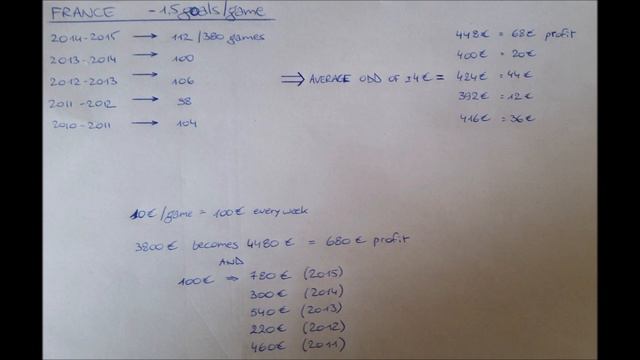 FRANCE - 1.5 goals/game
2014-2015 → 112 / 380 games
2013-2014 → 100
2012-2013 → 106
2011-2012 → 98
2010-2011 → 104
⇒ AVERAGE ODD OF ±4€ =
448€ = 68€ profit
400€ = 20€
424€ = 44€
392€ = 12€
416€ = 36€
10€/game = 100€ every week
3800€ becomes 4480€ = 680€ profit
AND
100€ ⇒ 780€ (2015)
300€ (2014)
540€ (2013)
220€ (2012)
460€ (2011)